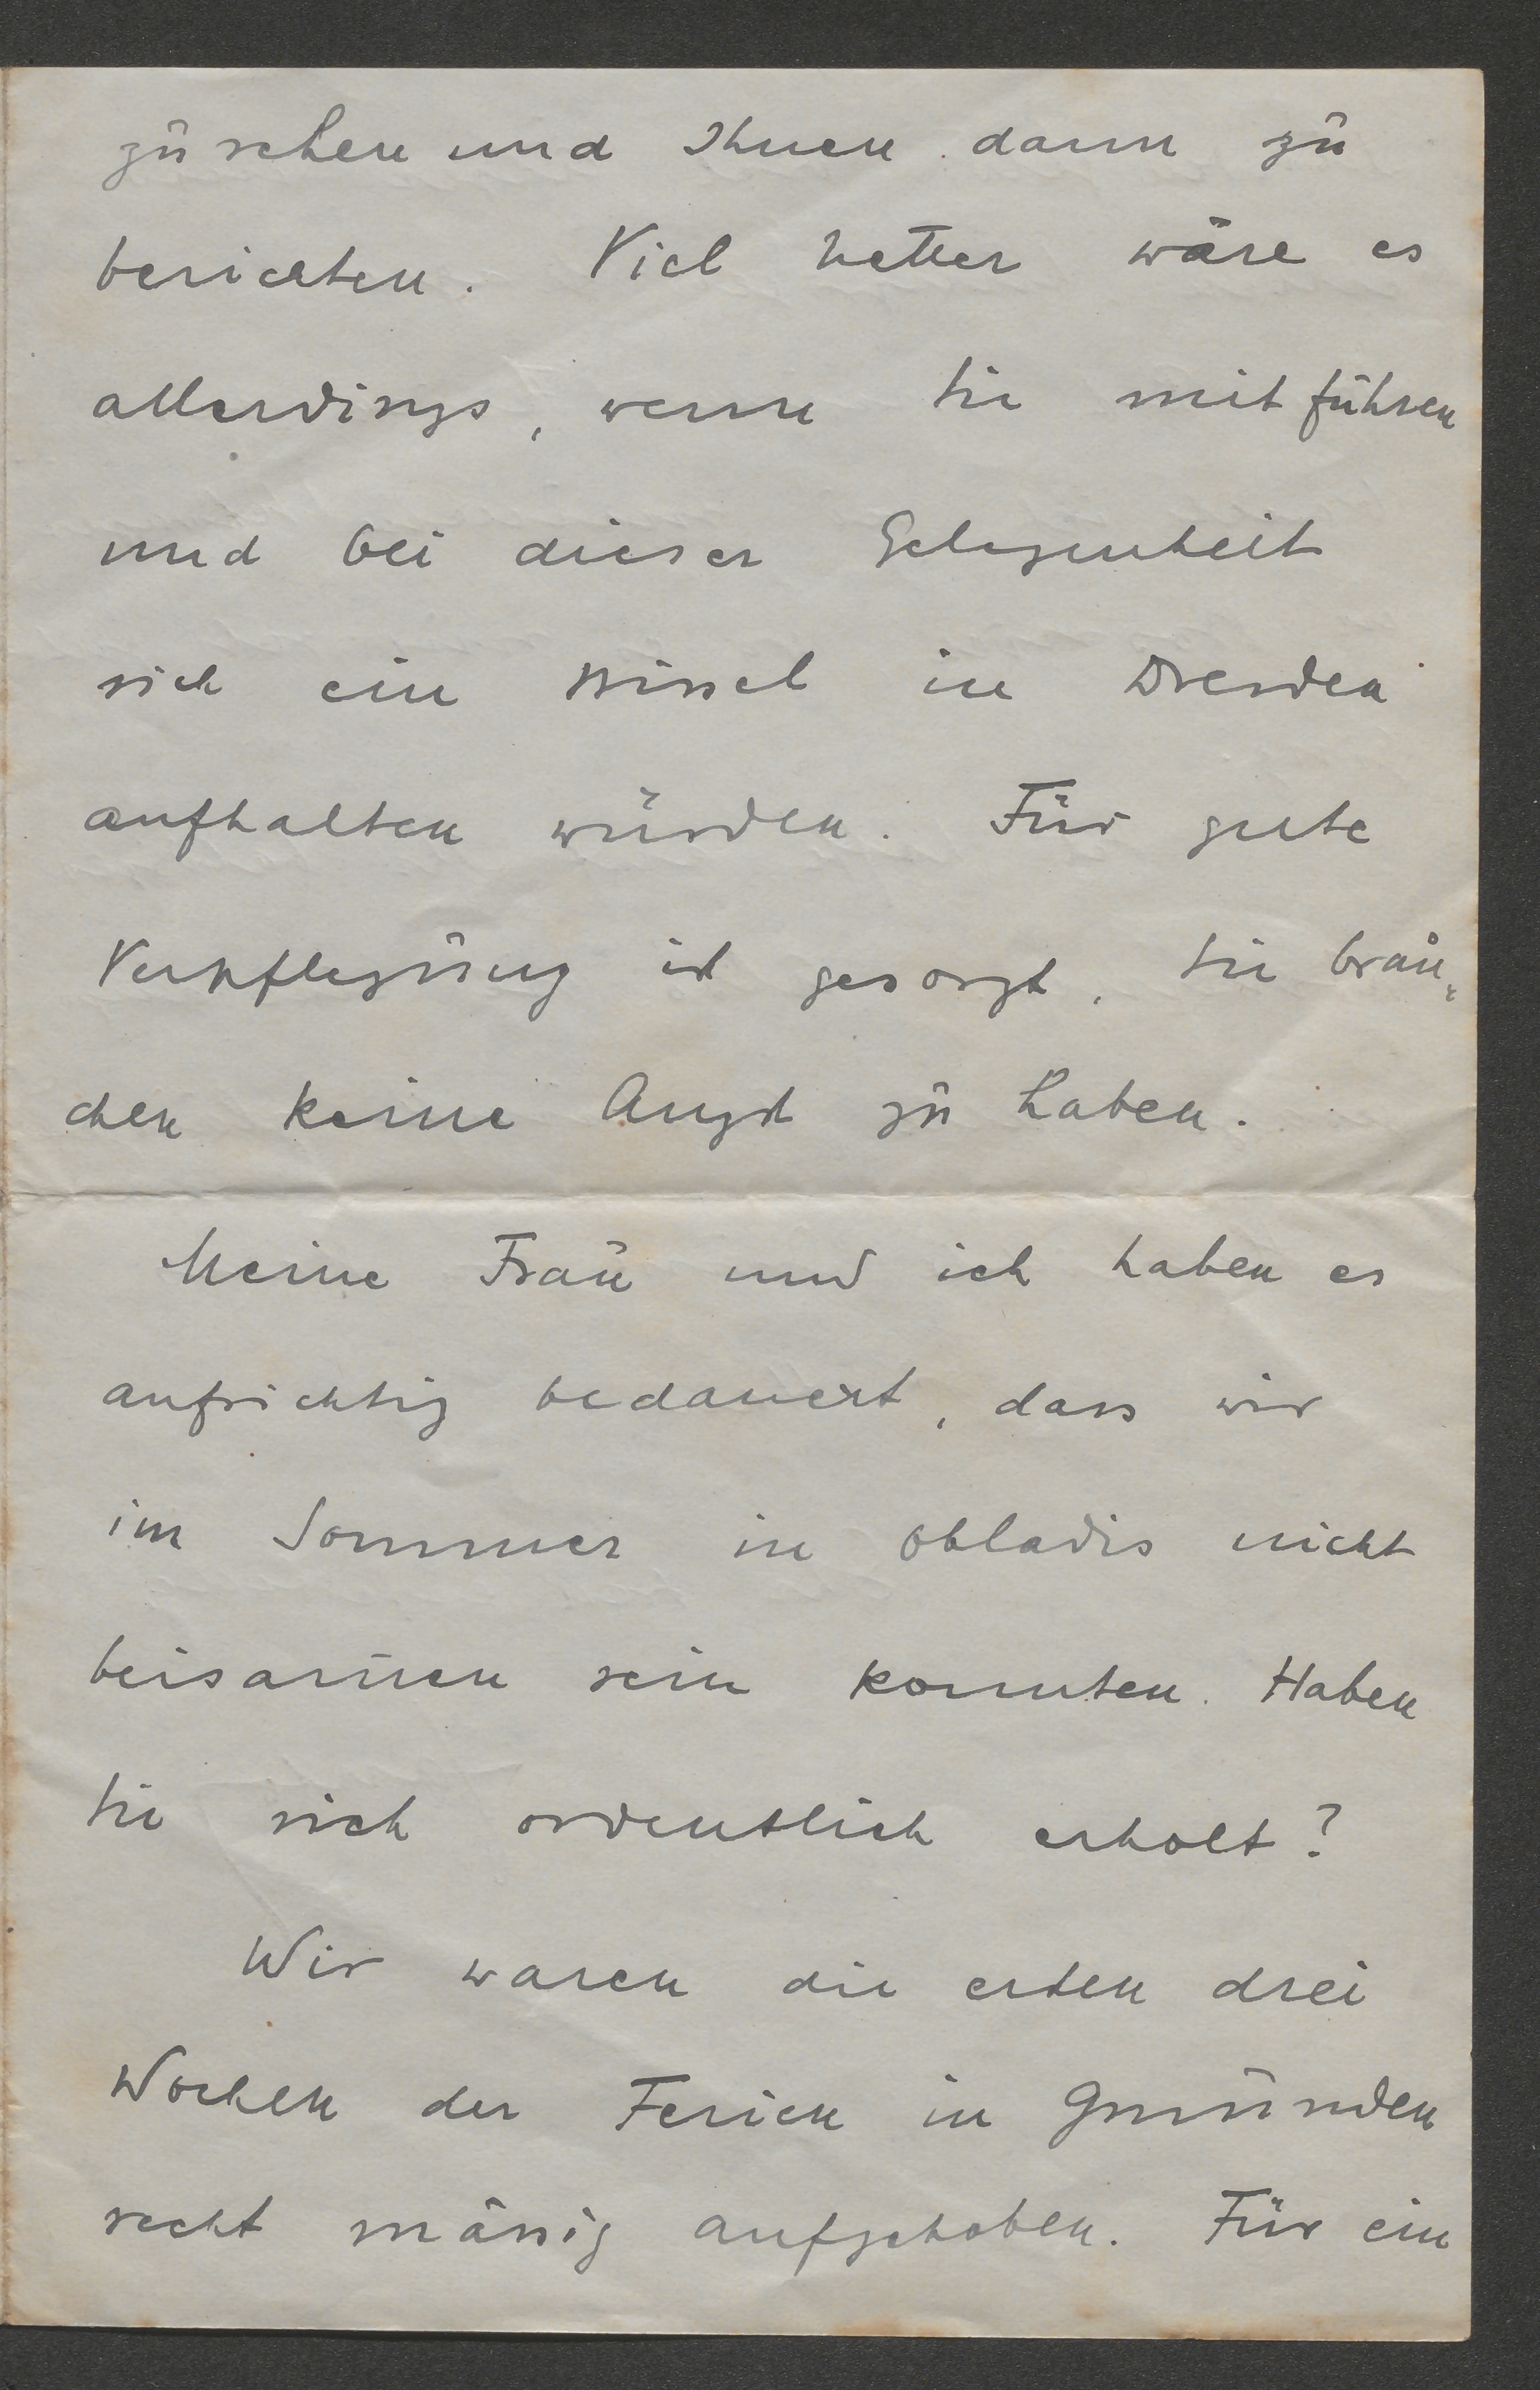 zu sehen und Ihnen dann zu
berichten. Viel netter wäre es
allerdings, wenn Sie mit führen
und bei dieser Gelegenheit
sich ein bissel in Dresden
aufhalten würden. Für gute
Verpflegung ist gesorgt, Sie brau-
chen keine Angst zu haben.
Meine Frau und ich haben es
aufrichtig bedauert, dass wir
im Sommer in Obladis nicht
beisam̄en sein konnten. Haben
Sie sich ordentlich erholt?
Wir waren die ersten drei
Wochen der Ferien in Gmunden
recht mässig aufgehoben. Für ein